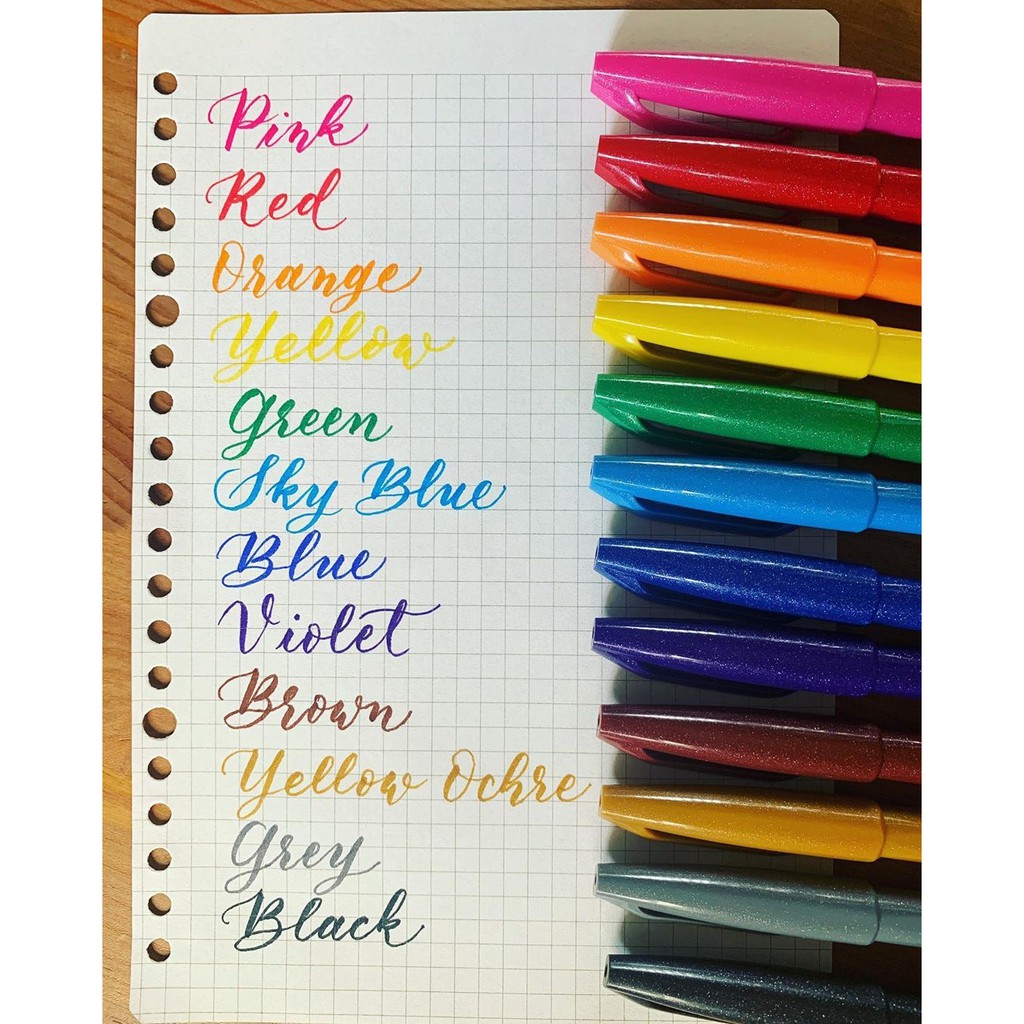 Pink
Red
Orange
Yellow
Green
Sky Blue
Blue
Violet
Brown
Yellow Ochre
Grey
Black